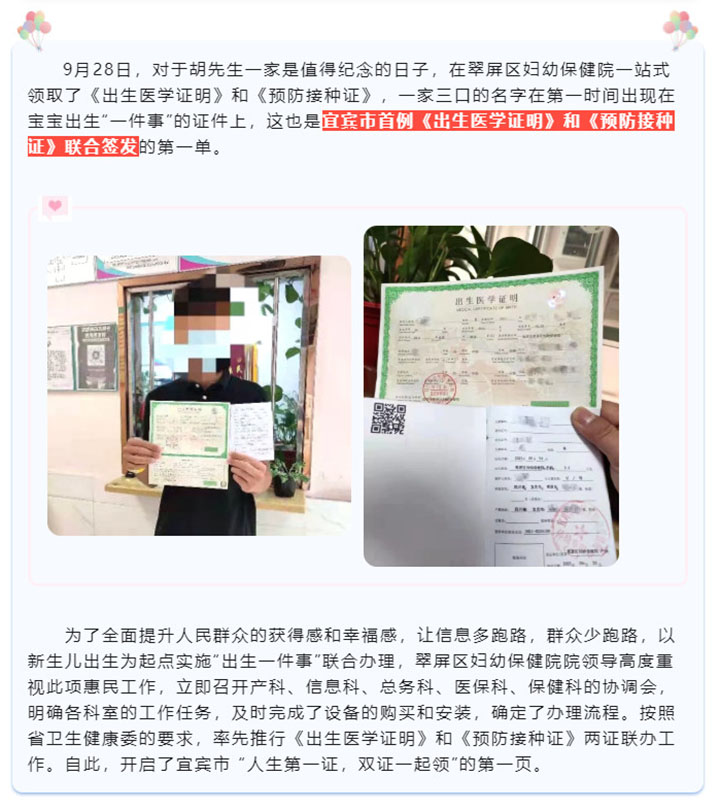 9月28日，对于胡先生一家是值得纪念的日子，在翠屏区妇幼保健院一站式
领取了《出生医学证明》和《预防接种证》，一家三口的名字在第一时间出现在
宝宝出生“一件事”的证件上，这也是宜宾市首例《出生医学证明》和《预防接种
证》联合签发的第一单。
出生医学证明
为了全面提升人民群众的获得感和幸福感，让信息多跑路，群众少跑路，以
新生儿出生为起点实施“出生一件事”联合办理，翠屏区妇幼保健院院领导高度重
视此项惠民工作，立即召开产科、信息科、总务科、医保科、保健科的协调会，
明确各科室的工作任务，及时完成了设备的购买和安装，确定了办理流程。按照
省卫生健康委的要求，率先推行《出生医学证明》和《预防接种证》两证联办工
作。自此，开启了宜宾市 “人生第一证，双证一起领”的第一页。